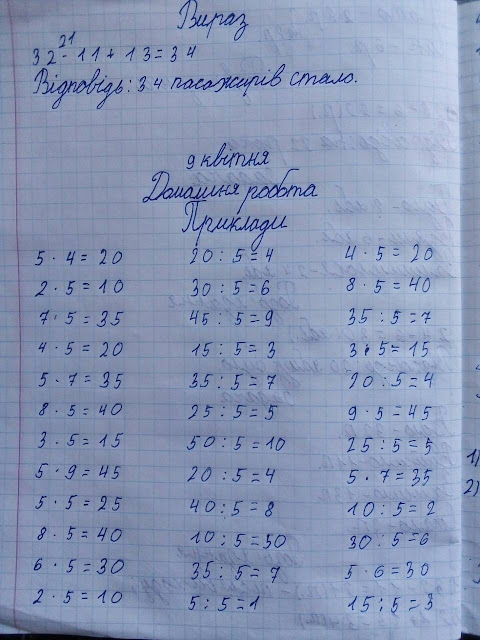 Вираз
21
32 - 11 + 13 = 34
Відповідь: 34 пасажирів стало.
9 квітня
Домашня робота
Приклади
5 · 4 = 20 20 : 5 = 4 4 · 5 = 20
2 · 5 = 10 30 : 5 = 6 8 · 5 = 40
7 · 5 = 35 45 : 5 = 9 35 : 5 = 7
4 · 5 = 20 15 : 5 = 3 3 · 5 = 15
5 · 7 = 35 35 : 5 = 7 20 : 5 = 4
8 · 5 = 40 25 : 5 = 5 9 · 5 = 45
3 · 5 = 15 50 : 5 = 10 25 : 5 = 5
5 · 9 = 45 20 : 5 = 4 5 · 7 = 35
5 · 5 = 25 40 : 5 = 8 10 : 5 = 2
8 · 5 = 40 10 : 5 = 50 30 : 5 = 6
6 · 5 = 30 35 : 5 = 7 5 · 6 = 30
2 · 5 = 10 5 : 5 = 1 15 : 5 = 3
1)
2)